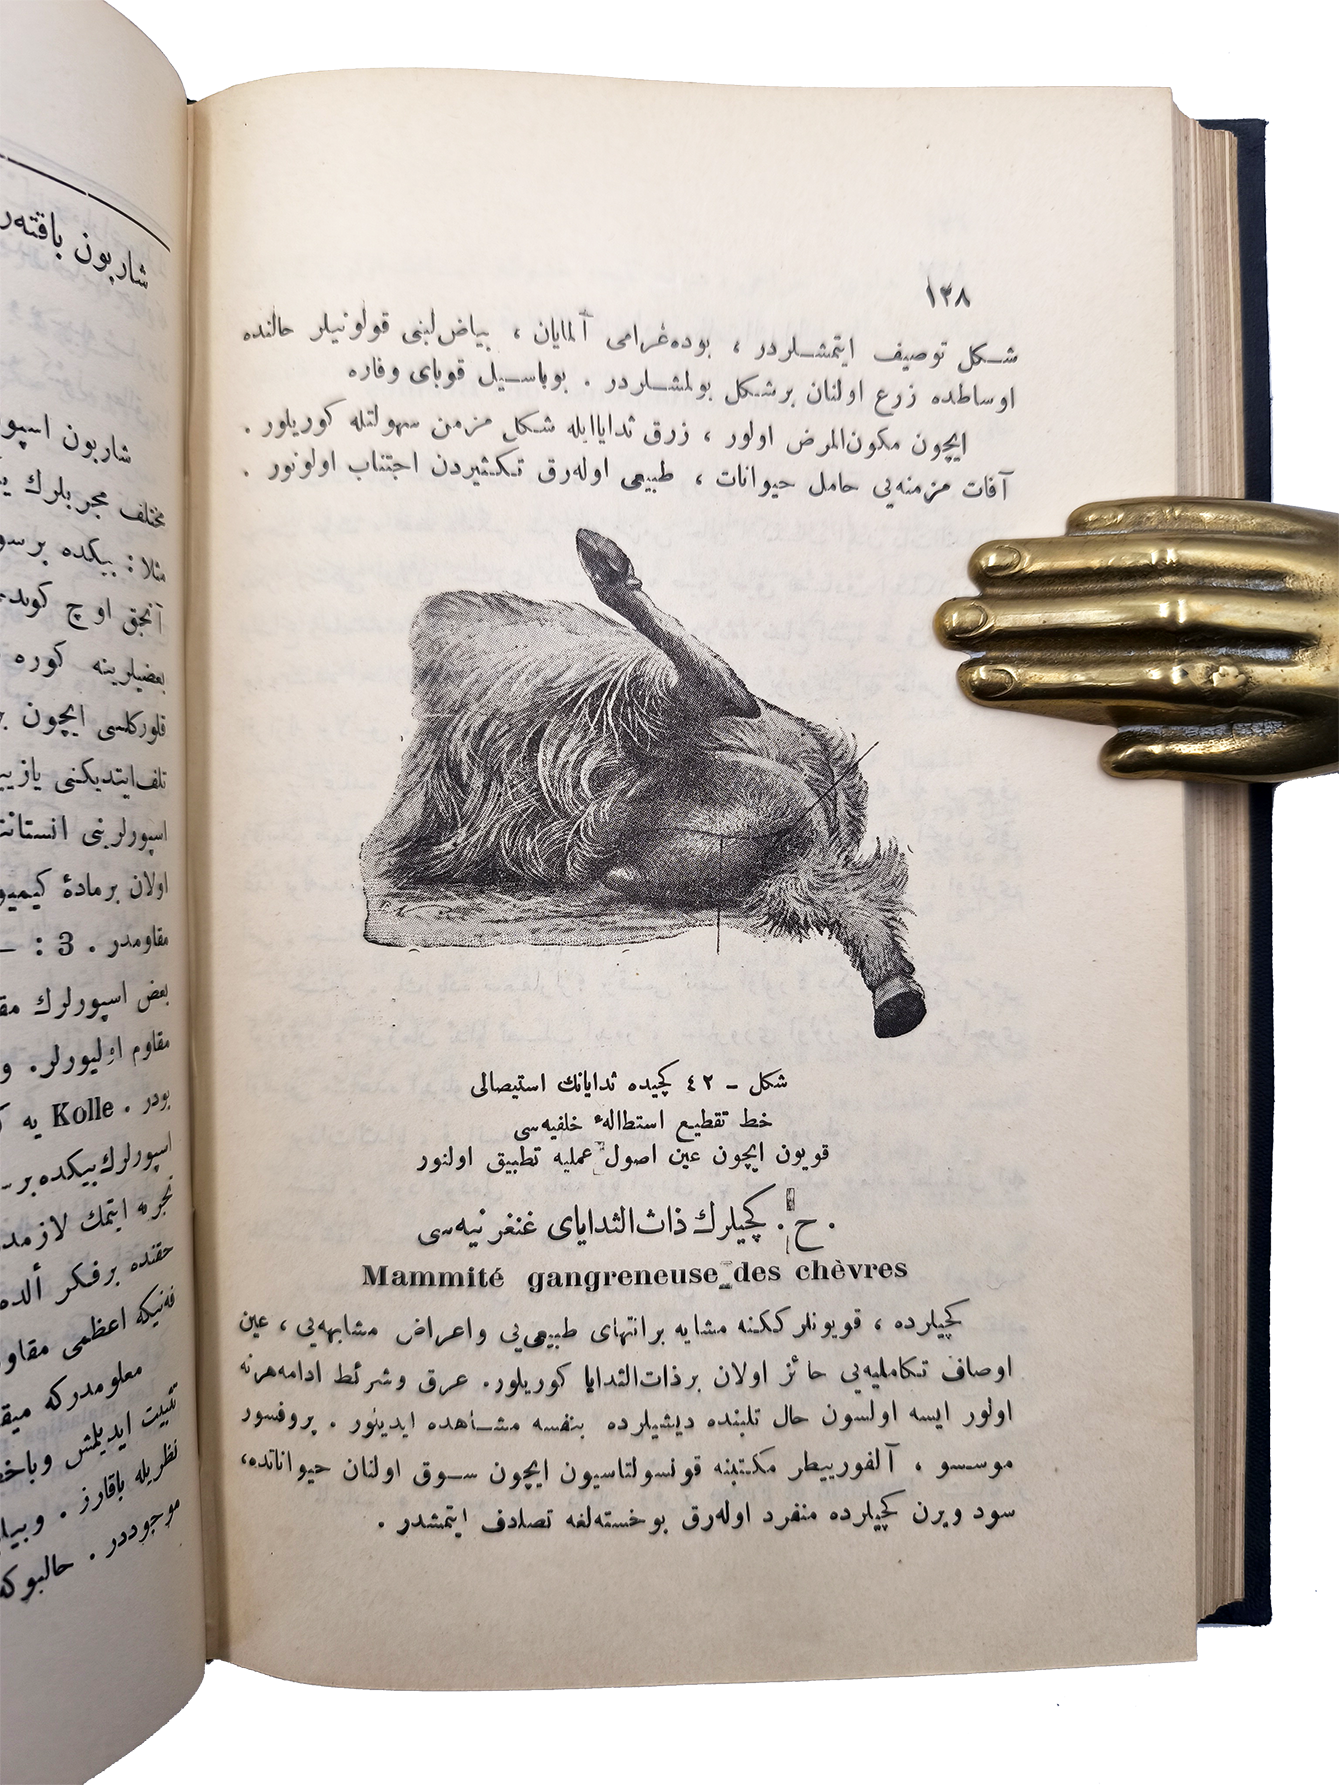 ١٣٨
شكل توصيف ايتمشلردر ، بوده غرامى آلمايان ، بياض لبنى قولونيلر حالنده
اوساطده زرع اولنان برشكل بولمشلردر . بوباسيل قوباى وفاره
ايچون مكون‌المرض اولور ، زرق ثداياايله شكل مزمن سهولتله كوريلور .
آفات مزمنه‌يى حامل حيوانات ، طبيعى اوله‌رق تكثيردن اجتناب اولونور .
شكل – ٤٢ كچيده ثدايانك استيصالى
خط تقطيع استطالهٔ خلفيه‌سى
قويون ايچون عين اصول عمليه تطبيق اولنور
. ح . كچيلرك ذات‌الثداياى غنغرنيه‌سى
Mammité gangreneuse des chèvres
كچيلرده ، قويونلرككنه مشابه برانتهاى طبيعى‌يى واعراض مشابهه‌يى ، عين
اوصاف تكامليه‌يى حائز اولان برذات‌الثدايا كوريلور. عرق وشرئط ادامه‌هرنه
اولور ايسه اولسون حال تلبنده ديشيلرده بنفسه مشاهده ايدينور . پروفسور
موسسو ، آلفورييطر مكتبنه قونسولتاسيون ايچون سوق اولنان حيواناتده،
سود ويرن كچيلرده منفرد اوله‌رق بوخسته‌لغه تصادف ايتمشدر .
شاربون باقته‌ر
شاربون اسپو
مختلف مجربلرك
مثلا : بيكده برسو
آنجق اوچ كوند
بعضيلرينه كوره
قلوركلسى ايچون
تلف‌ايتديكنى يازيي
اسپورلرينى انستانت
اولان برمادهٔ كيميو
مقاومدر . 3 : –
بعض اسپورلرك مق
مقاوم اوليورلر. و
بودر . Kolle يه ك
اسپورلرك‌بيكده‌بر
تجربه ايتمك لازمد
حقنده برفكر ألده
فه‌نيكه اعظمى مقاو
معلومدركه ميق
تثبيت ايديلمش وباخ
نظريله باقارز . وبيل
موجوددر . حالبوكه